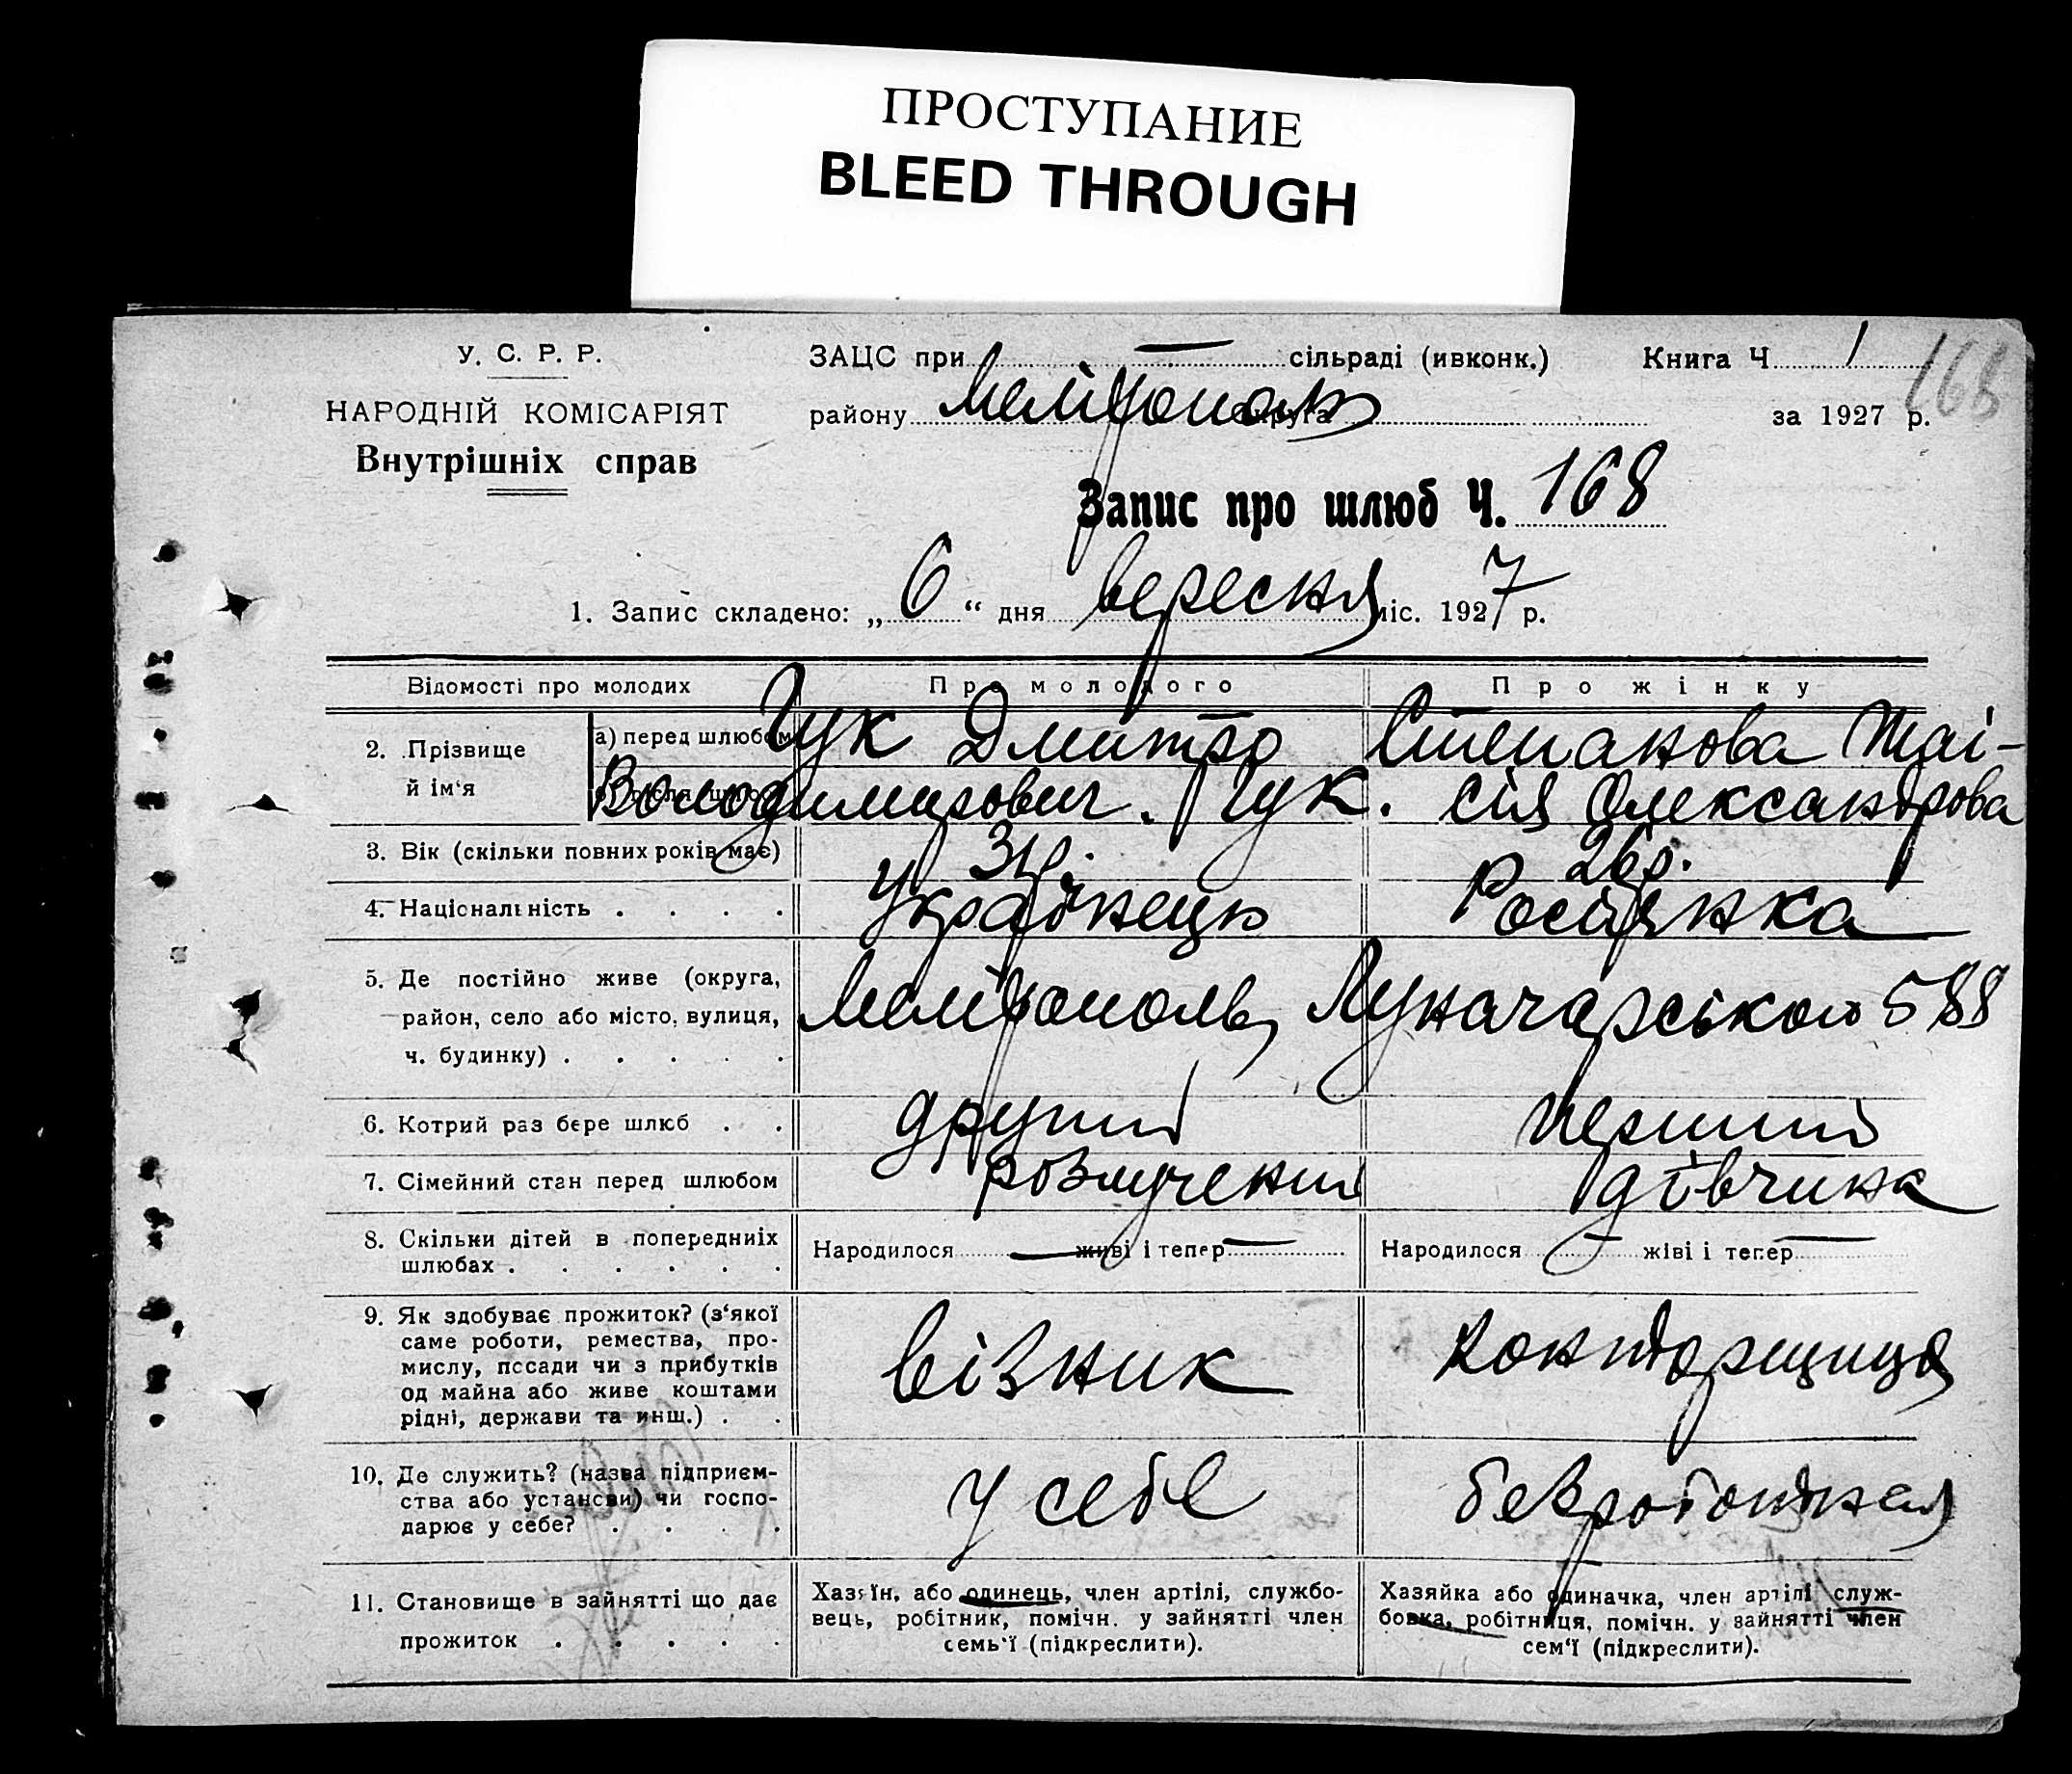 ПРОСТУПАНИЕ
BLEED THROUGH
У. С. Р. Р.
НАРОДНІЙ КОМІСАРІЯТ
Внутрішніх справ
ЗАЦС при — сільраді (ивконк.) Книга Ч 1
168
району Мелітополь округа за 1927 р.
Запис про шлюб Ч. 168
1. Запис складено: „ 6 “ дня вересня міс. 1927 р.
Відомості про молодих Про молодого Про жінку
2. Прізвище й ім‘я
а) перед шлюбом Гук Дмитро Степанова Таї-
Володимирович. Гук. сія Олександрова
3. Вік (скільки повних років має) 31р. 26р.
4. Національність . . . . Українець Росіянка
5. Де постійно живе (округа,
район, село або місто, вулиця, Мелітополь, Луначарського 588
ч. будинку) . . . . .
6. Котрий раз бере шлюб . . другий перший
7. Сімейний стан перед шлюбом розлучений дівчина
8. Скільки дітей в попередниіх
шлюбах . . . . . .
Народилося — живі і тепер — Народилося — жіві і тепер —
9. Як здобуває прожиток? (з‘якої
саме роботи, ремества, про-
мислу, пссади чи з прибутків
од майна або живе коштами
рідні, держави та инш.) . .
візник конторщиця
10. Де служить? (назва підприєм-
ства або установи) чи госпо-
дарює у себе? . . . .
у себе безроботная
11. Становище в зайнятті що дає
прожиток . . . . .
Хазяїн, або одинець, член артілі, службо-
вець, робітник, помічн. у зайнятті член
семь‘ї (підкреслити).
Хазяйка або одиначка, член артілі служ-
бовка, робітниця, помічн. у зайнятті член
сем‘ї (підкреслити).